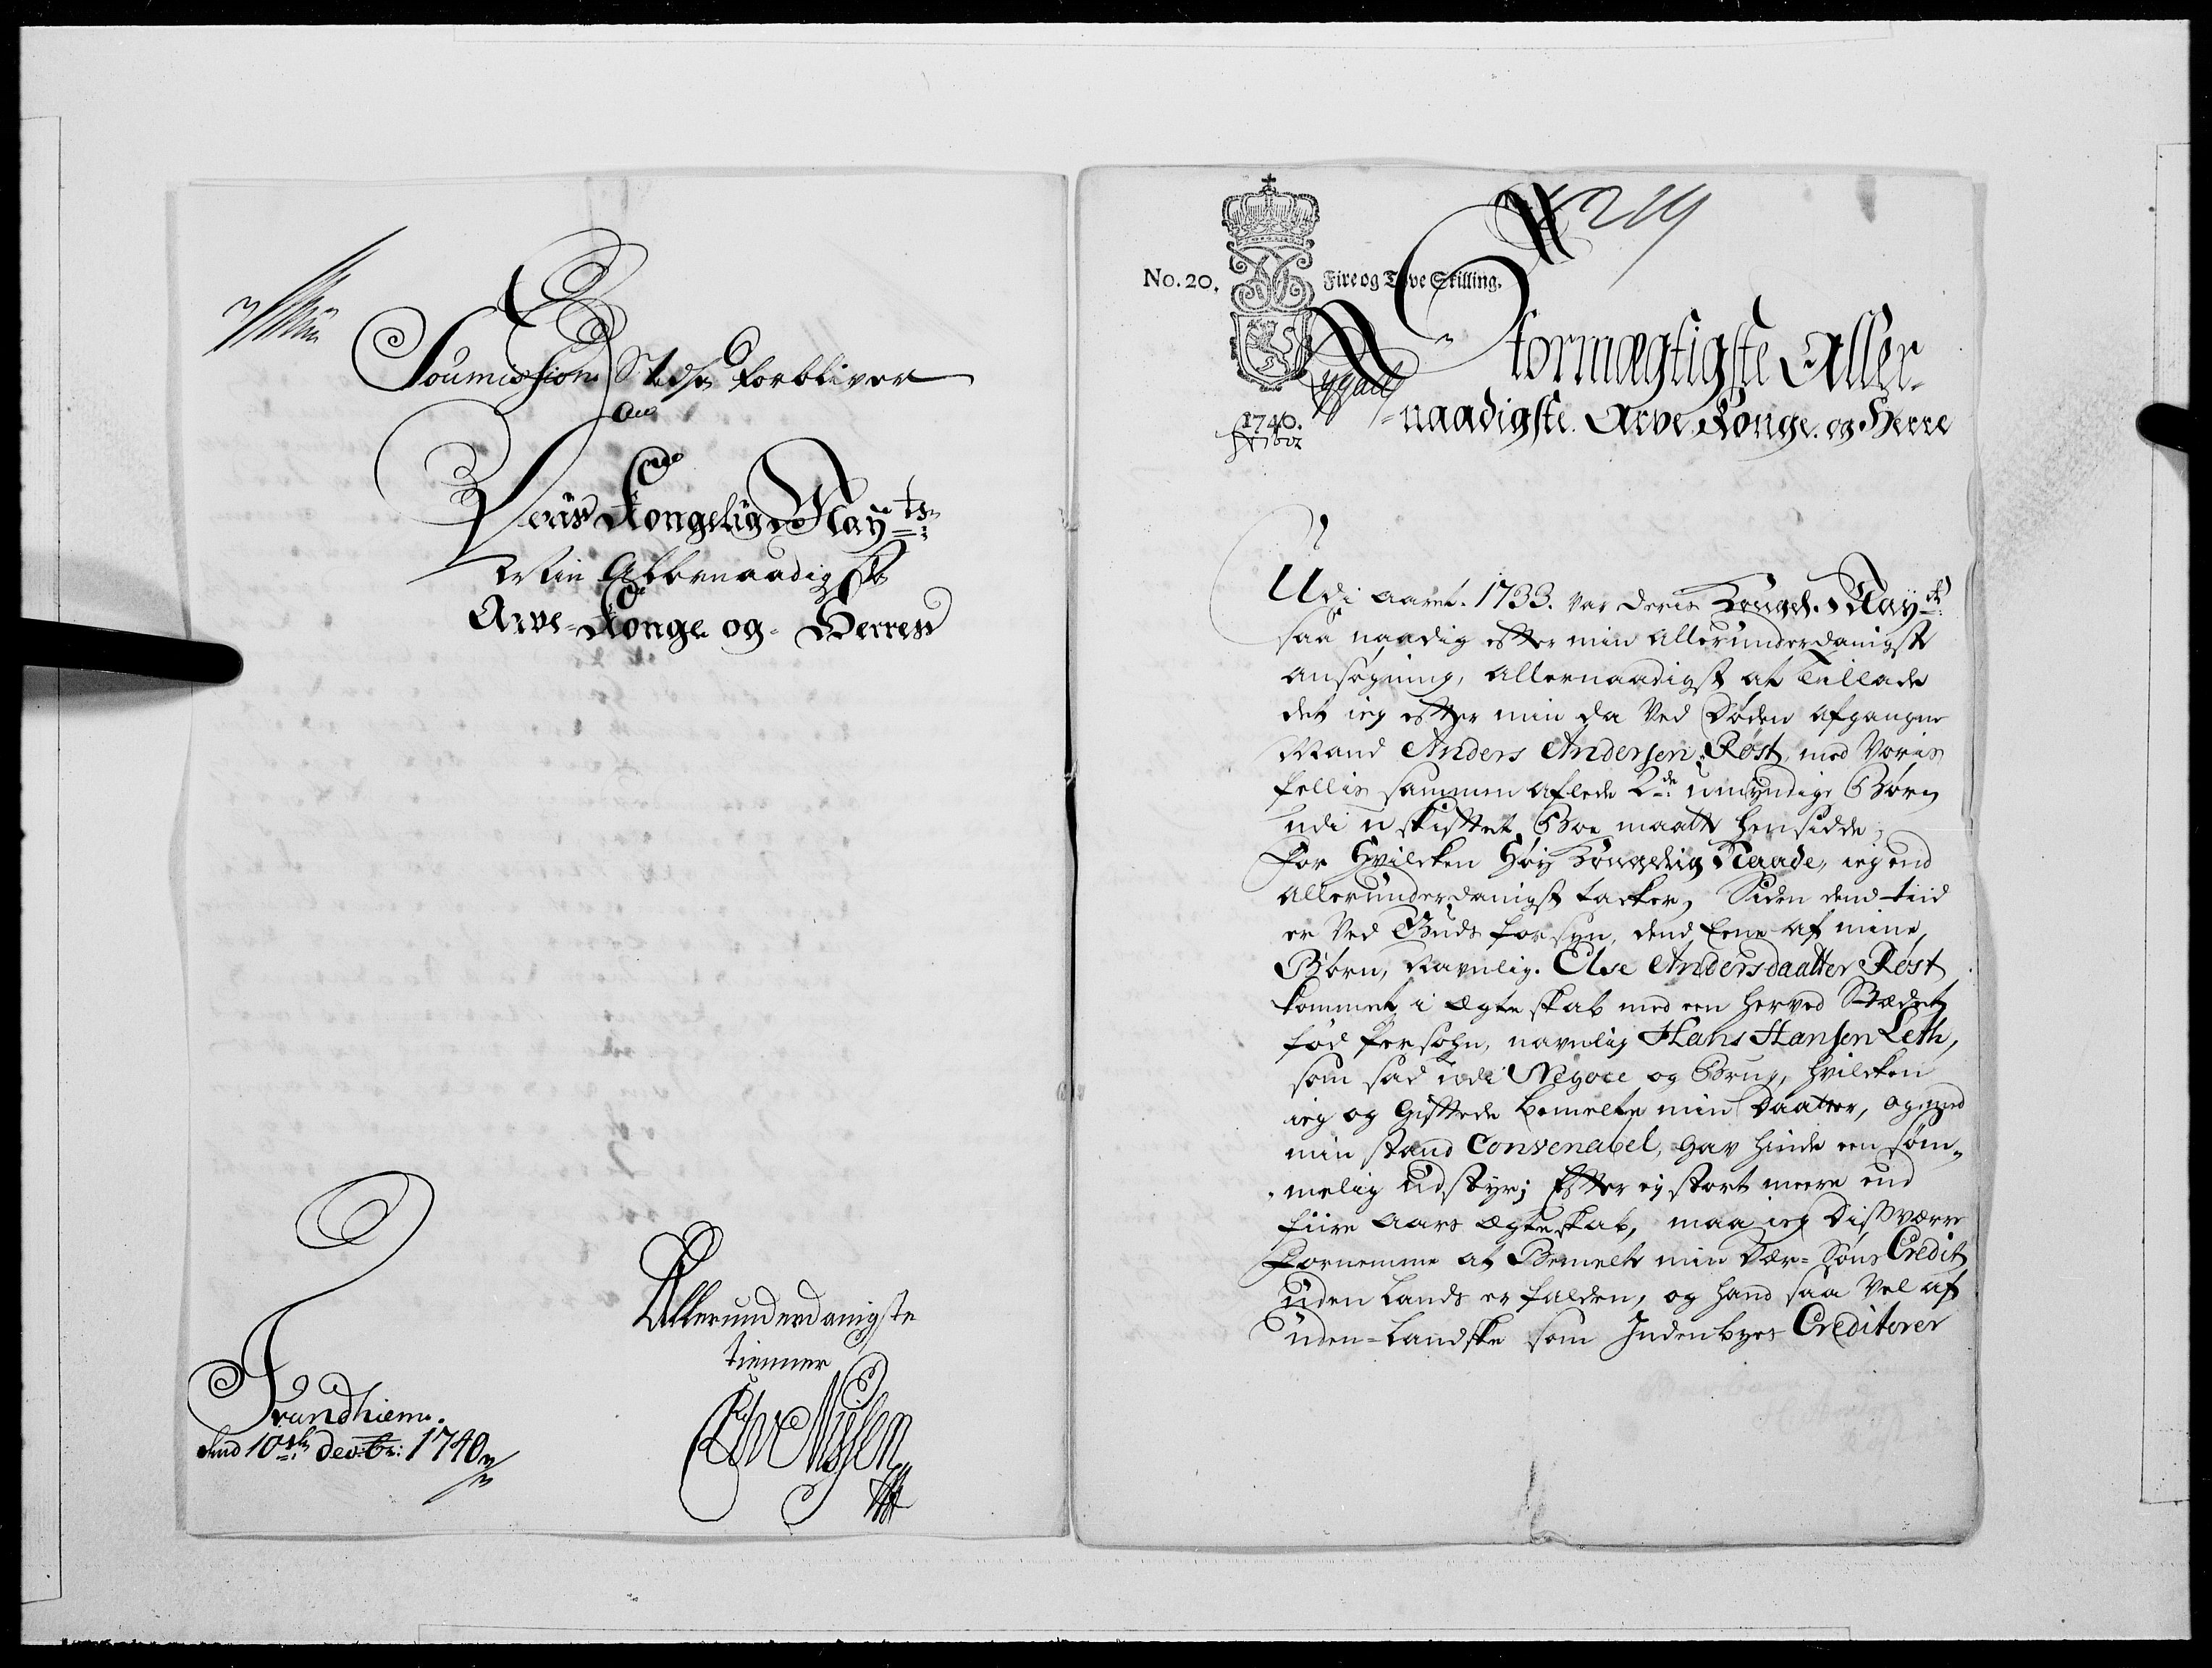 Soumission Stedse forbliver
Deris Kongelig May:ts
Min Allernaadigste
Arve-Konge og Herres
Allerunderdanigste
tienner
Trundhiem.
dend 10de decbr: 1740
219
No. 20.
Fire og Tyve Skilling.
1740.
Stormægtigste Aller-
-naadigste Arve Konge og Herre
Udi aaret 1733. var Deris Kongel. May:t
saa naadig efter min allerunderdanigst
ansøgning, allernaadigst at Tillade
det ieg efter min da Ved Døden afgangne
Mand Anders Andersen Røst, med Voris
fellis sammen aflede 2de umyndige Børn
udi uskiftet Boe maatte hensidde,
For Hvilcken Høy Kongelig Naade, ieg end
allerunderdanigst tacker, Siden dend tiid
er Ved Guds forsyn, dend Eene af mine
Børn, Navnlig. Else Andersdaatter Røst
kommet i Ægteskab med een herved Stædet
fød Persohn, navnlig Hans Hansen Leth,
som sad udi Negoce og Brug, hvilcken
ieg og Giftede bemelte min Daatter, og med
min stand Convenabel, gav hinde een søm-
melig Udstyr; Efter ey stort meere end
fiire Aars Ægteskab, maa ieg Dissværre
Fornemme at Bemelte min Dær-Søns Credit
uden Lands er falden, og hand saa Vel af
uden-Landske som Indenbyes Creditorer